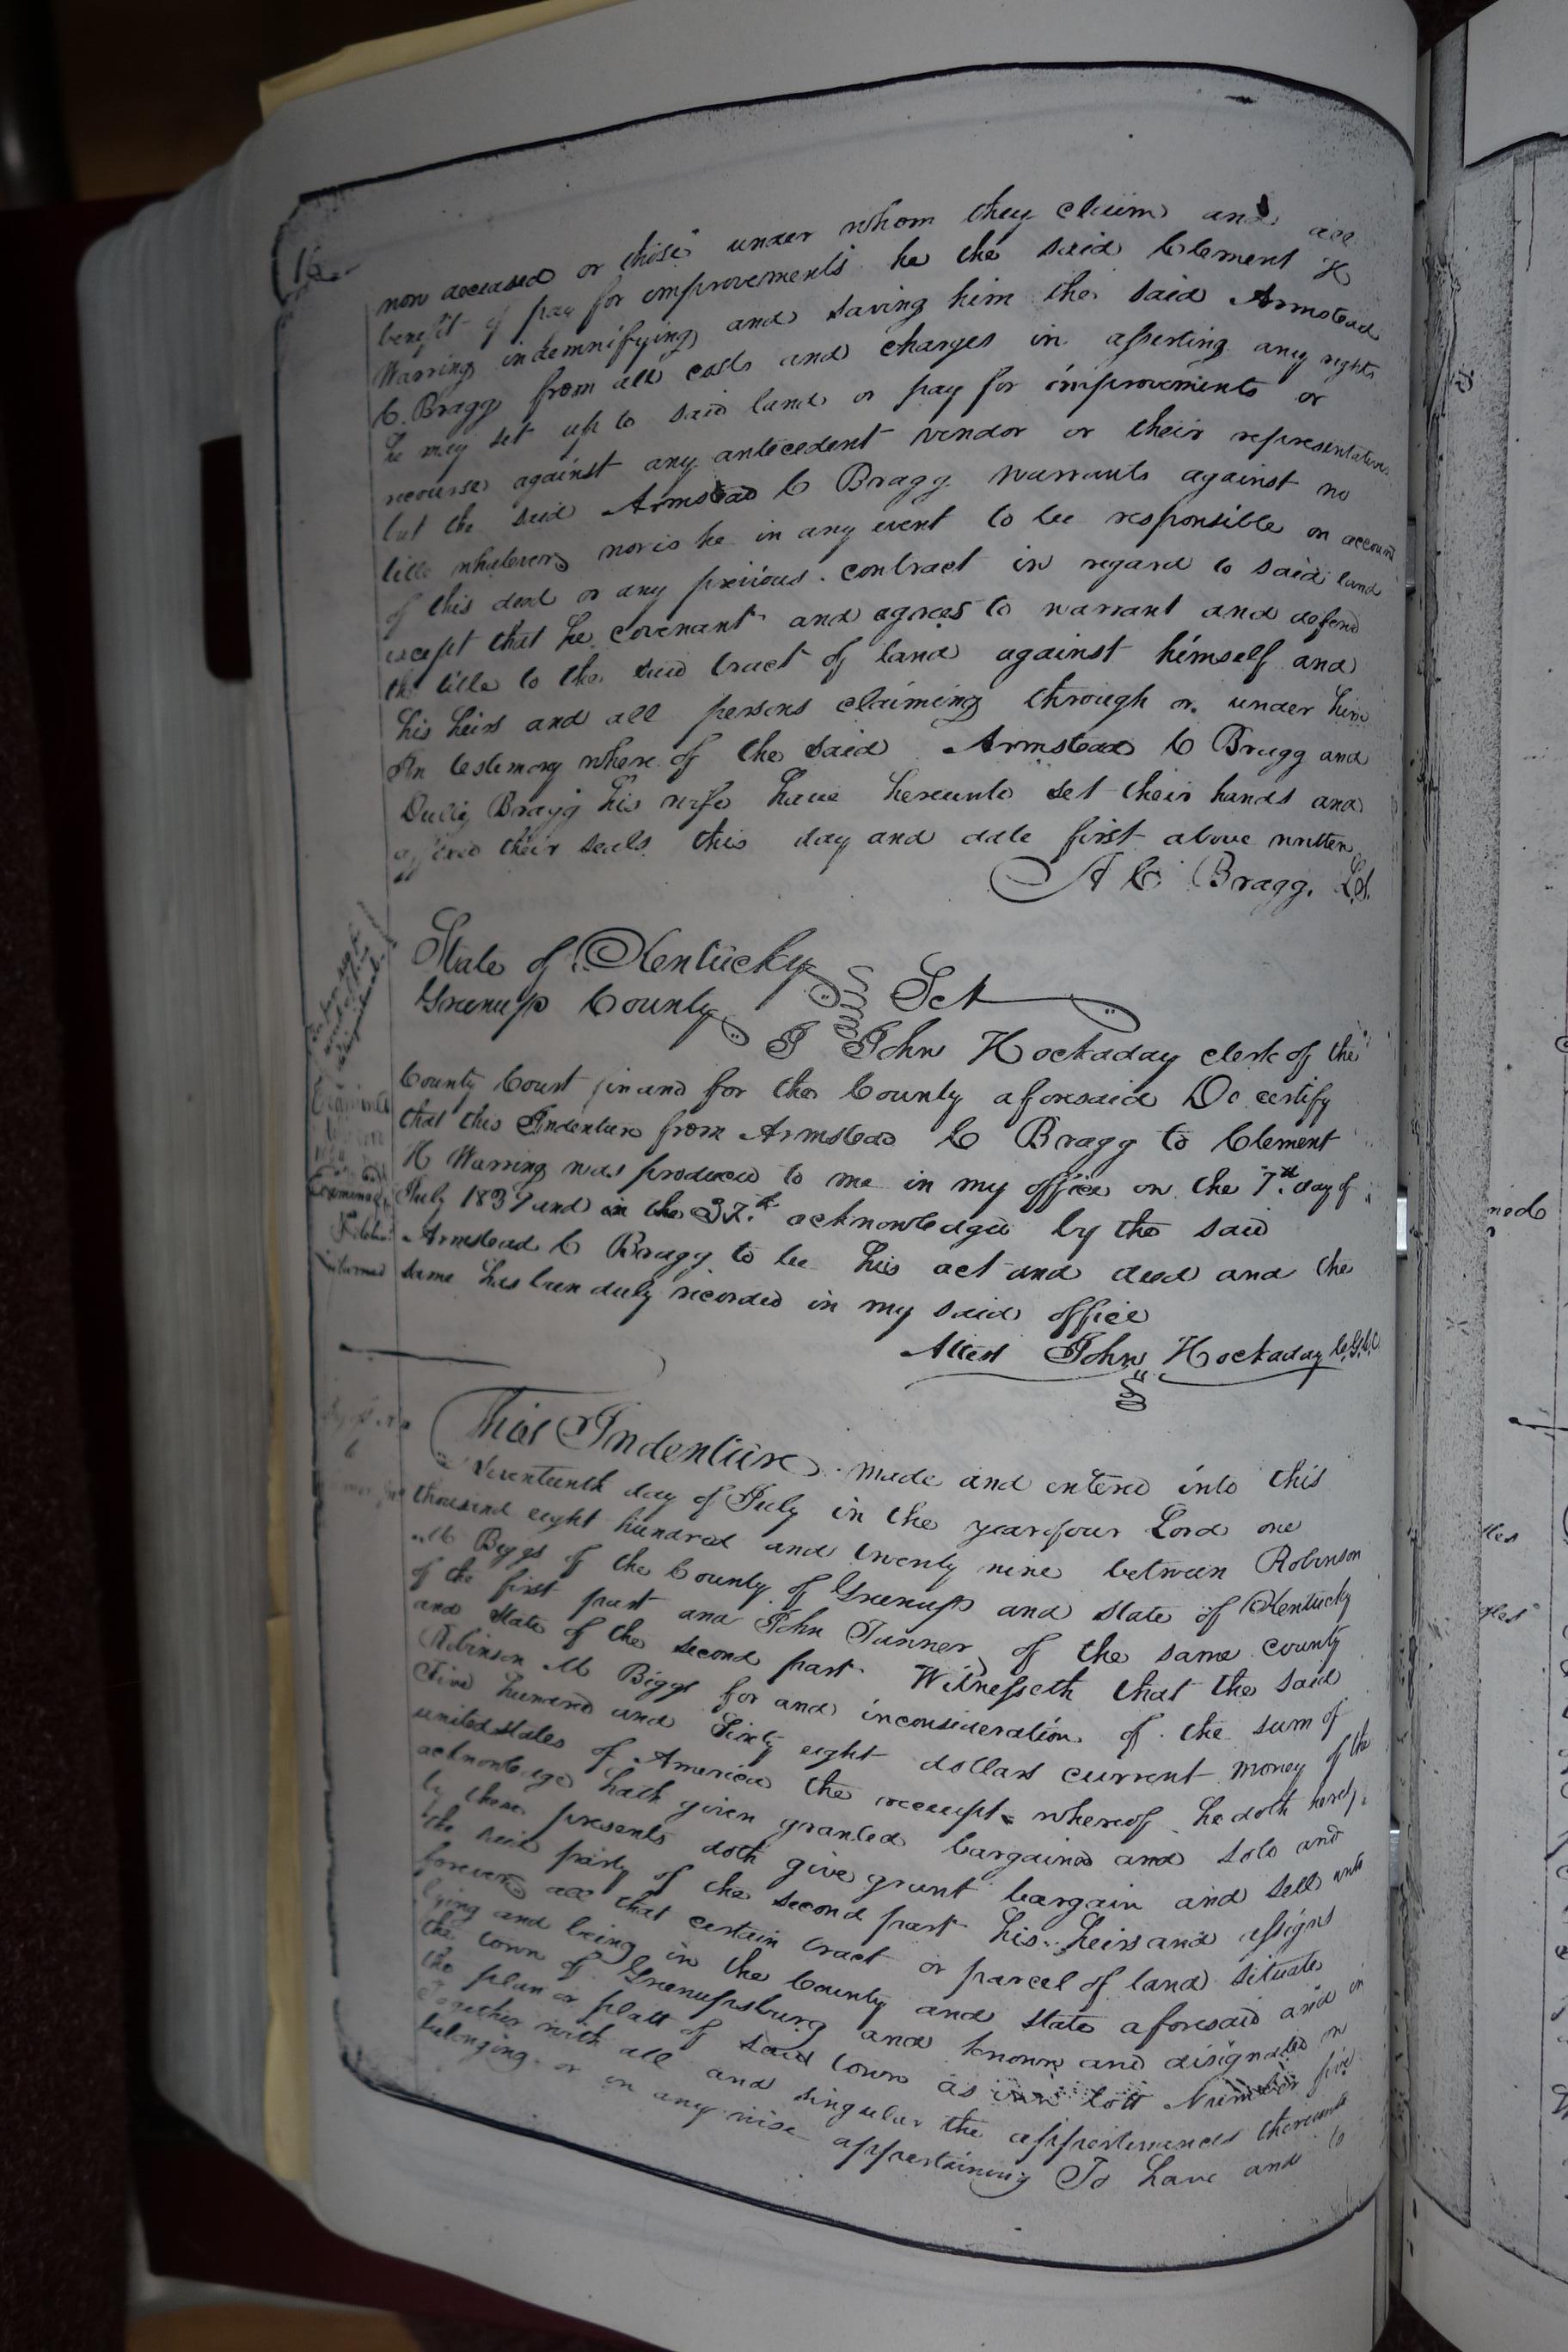 16
now deceased or those under whom they claim and all
benefit of pay for improvements he the said Clement H
Warring indemnifying and saving him the said Armstead
C. Bragg from all costs and charges in asserting any rights
he may set up to said land or pay for improvements or
recourse against any antecedent vendor or their representatives
but the said Armstead C Bragg warrants against no
title whatever nor is he in any event to be responsible on account
of this deed or any previous contract in regard to said land
except that he covenant and agrees to warrant and defend
the title to the said tract of land against himself and
his heirs and all persons claiming through or under him
In testimony where of the said Armstead C Bragg and
Bragg his wife have hereunto set their hands and
affixed their seals this day and date first above written
A C Bragg. L.S.
State of Kentucky
Greenup County Sct
I John Hockaday clerk of the
County Court in and for the County aforesaid Do certify
that this Indenture from Armstead C Bragg to Clement
H Warring was produced to me in my office on the 7th day of
July and in the acknowledged by the said
Armstead C Bragg to be his act and deed and the
same has been duly recorded in my said office
Attest John Hockaday C.G.C.C.
This Indenture made and entered into this
Seventeenth day of July in the year of our Lord one
thousand eight hundred and twenty nine between Robinson
M Biggs of the County of Greenup and state of Kentucky
of the first part and John Tanner of the same county
and state of the second part Witnesseth that the said
Robinson M Biggs for and inconsideration of the sum of
Five hundred and Sixty eight dollars current money of the
united states of America the receipt whereof he doth hereby
acknowledge hath given granted bargained and sold and
by these presents doth give grant bargain and sell unto
the said party of the second part his heirs and assigns
forever all that certain tract or parcel of land situate
lying and being in the County and state aforesaid and in
the town of Greenupsburg and known and designated on
the plan or platt of said town as lott Number five
Together with all and singular the appurtenances thereunto
belonging or in any wise appertaining To have and to